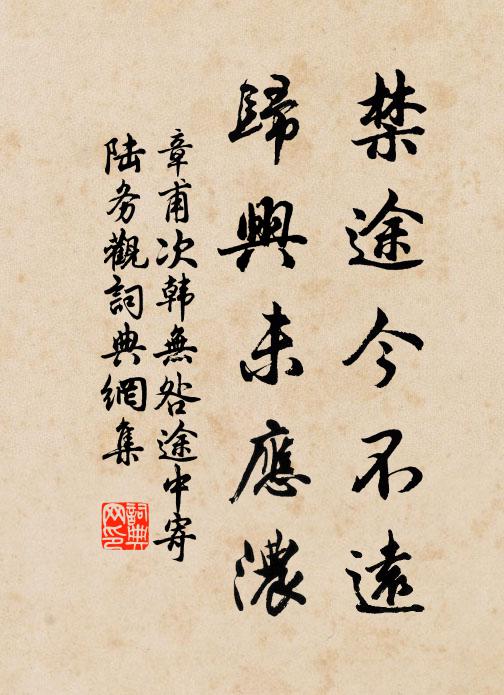 禁途今不遠
歸興未應濃
章甫次韩無咎途中寄
陆务觀詞典網集
詞典
网印